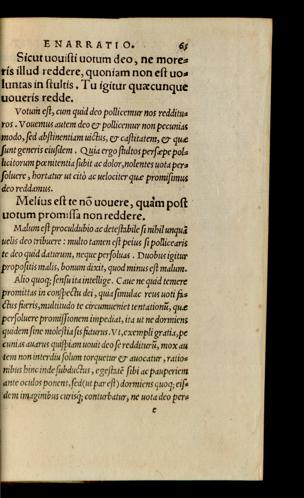 ENARRATIO. 65
Sicut uouisti uotum deo, ne more=
ris illud reddere, quoniam non est uo=
luntas in stultis. Tu igitur quæcunque
uoueris redde.
Votum est, cum quid deo pollicemur nos redditu=
ros. Vouemus autem deo & pollicemur non pecunias
modo, sed abstinentiam uictus, & castitatem, & quæ
sunt generis eiusdem. Quia ergo stultos persæpe pol=
licitorum pœnitentia subit ac dolor, nolentes uota per=
soluere, hortatur ut citò ac uelociter quæ promisimus
deo reddamus.
Melius est te nõ uouere, quàm post
uotum promissa non reddere.
Malum est proculdubio ac detestabile si nihil unquã
uelis deo tribuere: multo tamen est peius si pollicearis
te deo quid daturum, neque persoluas. Duobus igitur
propositis malis, bonum dixit, quod minus est malum.
Alio quoq; sensu ita intellige. Caue ne quid temere
promittas in conspectu dei, quia simulac reus uoti fa=
ctus fueris, multitudo te circumueniet tentationũ, quæ
persoluere promissionem impediat, ita ut ne dormiens
quidem sine molestia sis futurus. Vt, exempli gratia, pe
cunias auarus quispiam uouit deo se redditurũ, mox au
tem non interdiu solum torquetur & auocatur, ratio=
nibus hinc inde subductus, egestatẽ sibi ac pauperiem
ante oculos ponens, sed (ut par est) dormiens quoq; eis=
dem imaginibus curisq; conturbatur, ne uota deo per=
e